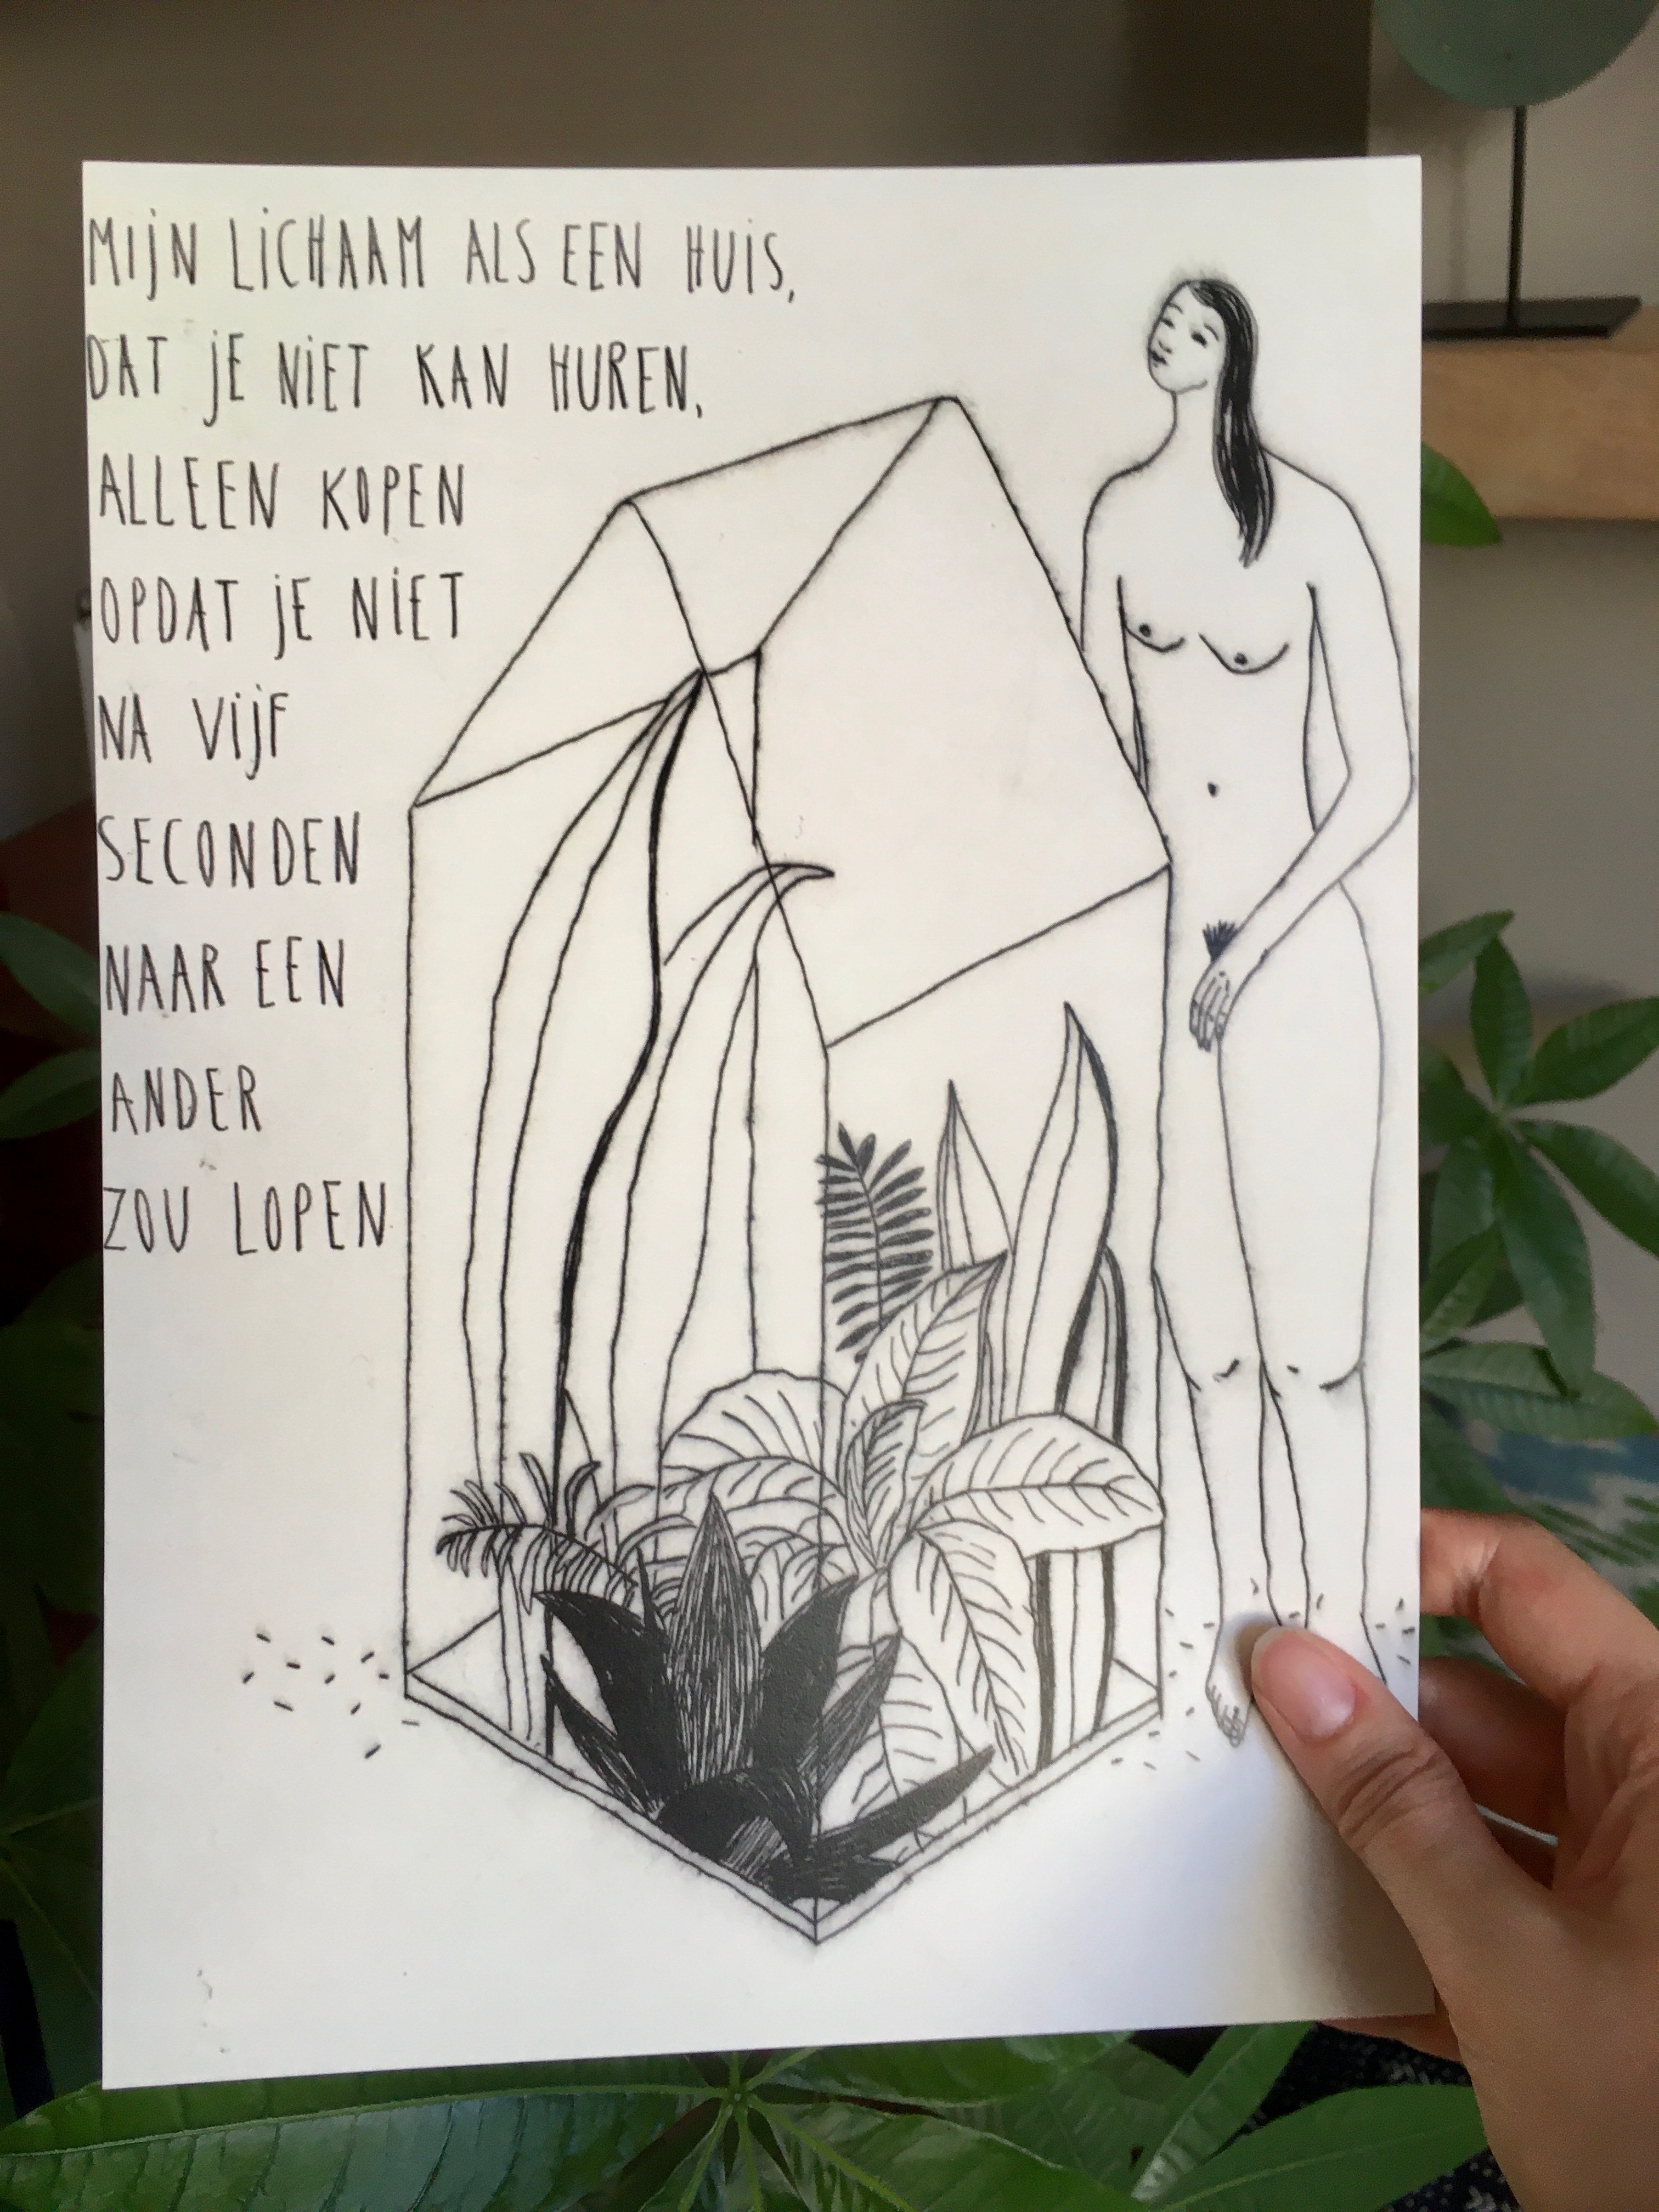 MIJN LICHAAM ALS EEN HUIS,
DAT JE NIET KAN HUREN,
ALLEEN KOPEN
OPDAT JE NIET
NA VIJF
SECONDEN
NAAR EEN
ANDER
ZOU LOPEN